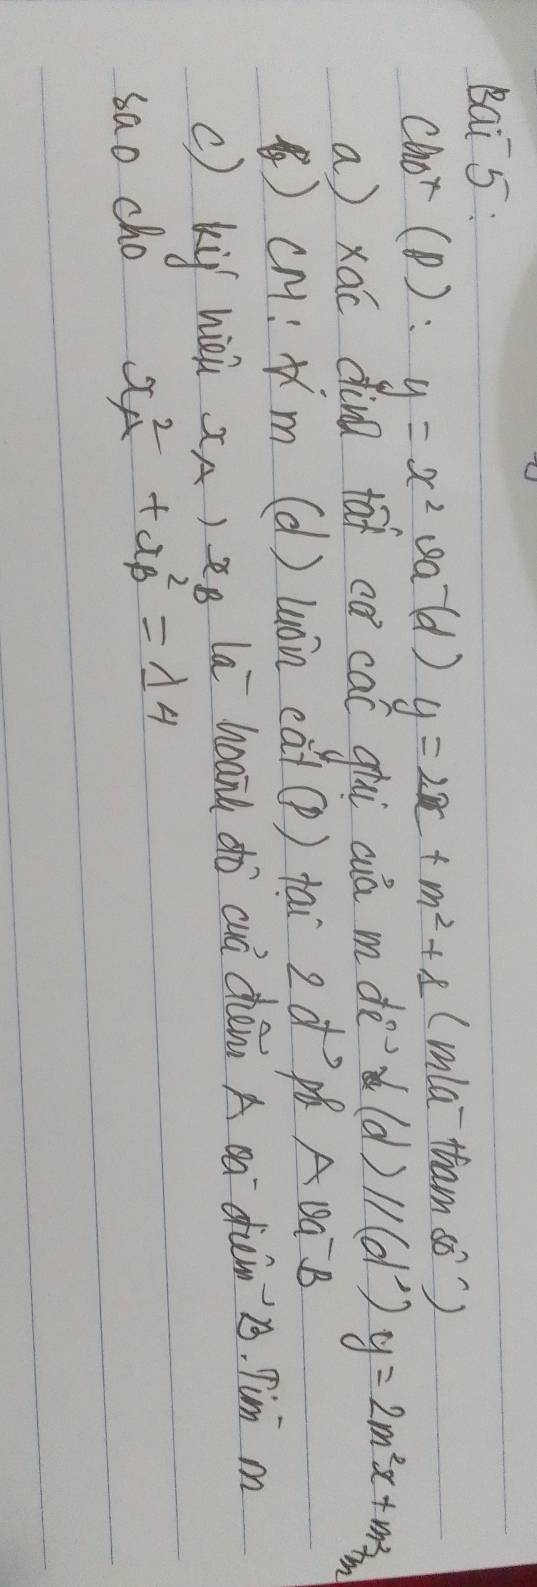 Bài 5:
Cho (P): y = x² và (d) y = 2x + m² + 1 (m là tham số)
a) xác định tất cả các gtrị của m để (d) // (d') y = 2m²x + m² + m
b) CM: ∀m (d) luôn cắt (P) tại 2 đ' pb A và B
c) ký hiệu x_A, x_B là hoành độ của điểm A và điểm B. Tìm m
sao cho x_A² + x_B² = 14